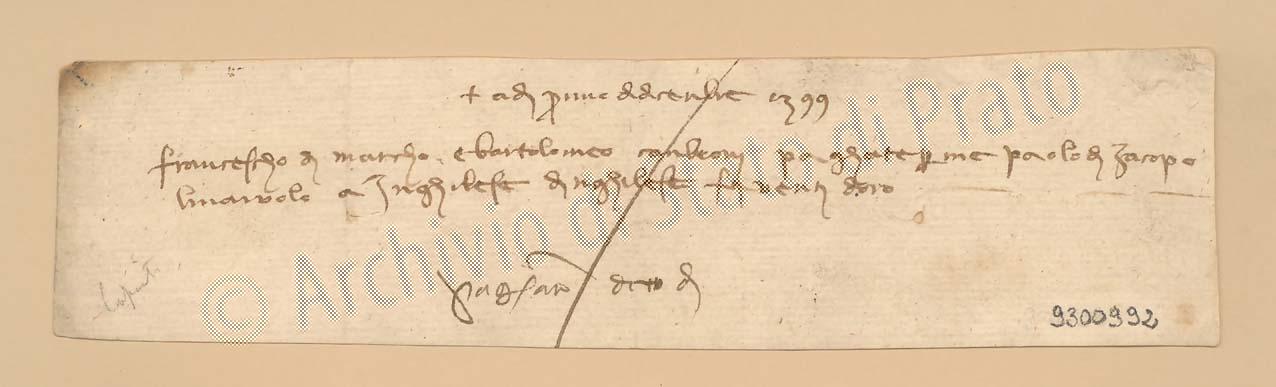 † adi primo didicenbre 1399
franceschо di marcho e bartolomeo canbioni paghate per me paolo di Jacopo
linaiuolo a Jnghilese dinghilese f venti doro
paghato detto di
9300992
© Archivio di Stato di Prato